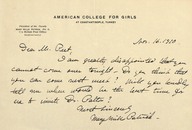 AMERICAN COLLEGE FOR GIRLS
AT CONSTANTINOPLE, TURKEY
Nov. 16, 1920
Dear Mr. Peet,
I am greatly disappointed that you
cannot come over tonight. Do you think that
you can come next week? Will you kindly
tell me what would be the best time for
us to invite Dr. Patton?
Most sincerely,
Mary Mills Patrick.